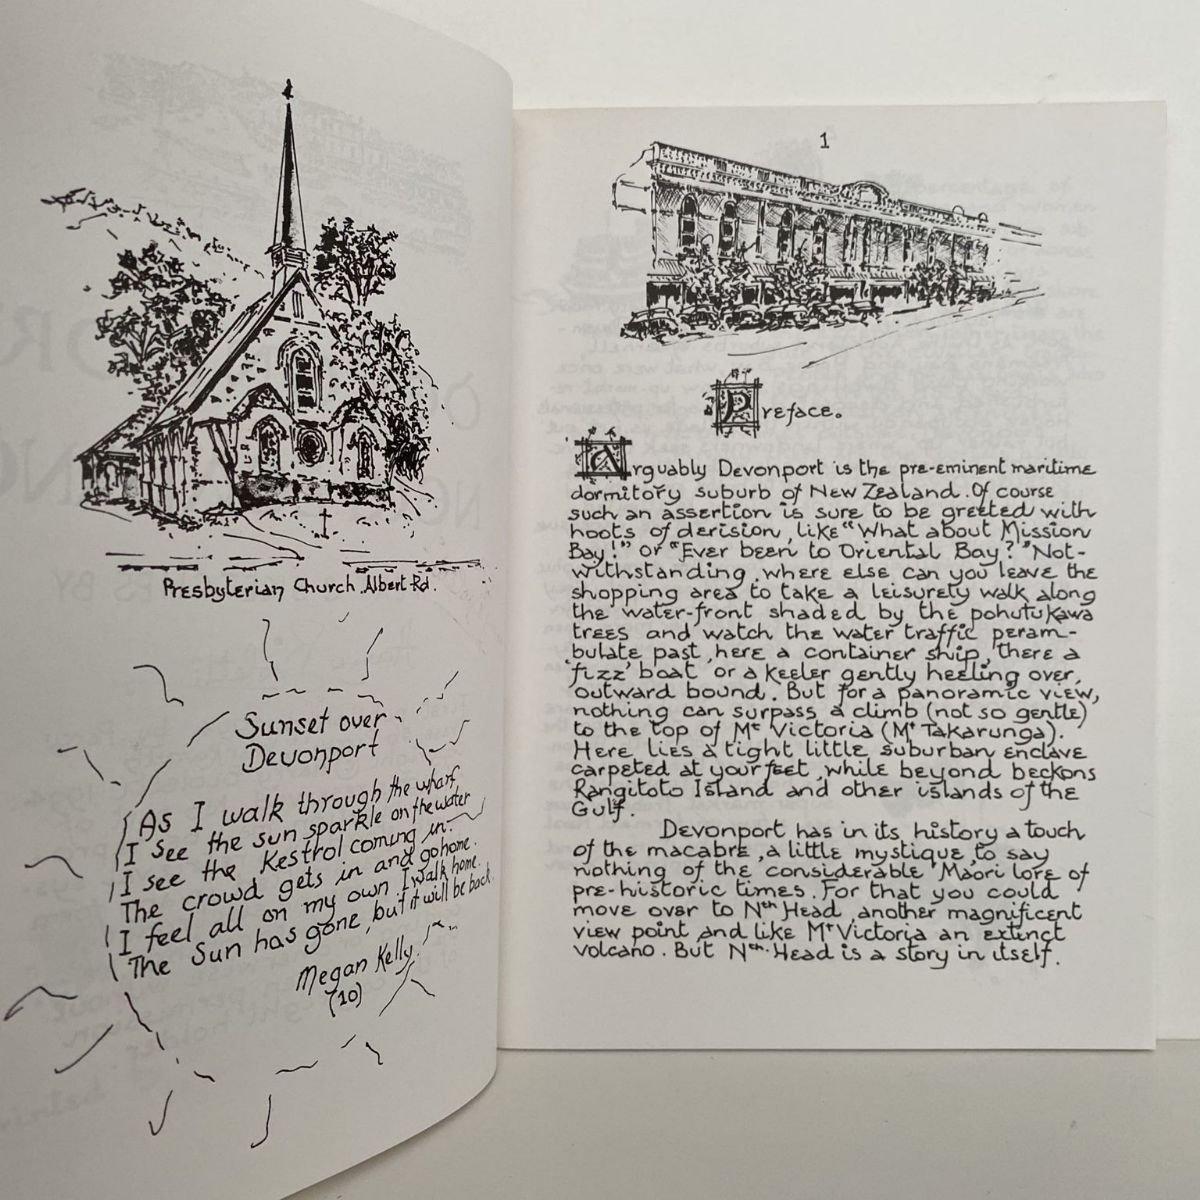 Presbyterian Church. Albert Rd.
Sunset over
Devonport
As I walk through the wharf,
I see the sun sparkle on the water
I see the Kestrol coming in.
The crowd gets in and go home.
I feel all on my own. I walk home.
The Sun has gone, but it will be back.
Megan Kelly.
(10)
1
Preface.
Arguably Devonport is the pre-eminent maritime
dormitory suburb of New Zealand. Of course
such an assertion is sure to be greeted with
hoots of derision, like "What about Mission
Bay!" or "Ever been to Oriental Bay?" Not-
withstanding, where else can you leave the
shopping area to take a leisurely walk along
the water-front shaded by the pohutukawa
trees and watch the water traffic peram-
bulate past, here a container ship, there a
'fizz' boat or a keeler gently heeling over,
outward bound. But for a panoramic view,
nothing can surpass a climb (not so gentle)
to the top of Mt Victoria (Mt Takarunga).
Here lies a tight little suburban enclave
carpeted at your feet, while beyond beckons
Rangitoto Island and other islands of the
Gulf.
Devonport has in its history a touch
of the macabre, a little mystique, to say
nothing of the considerable Maori lore of
pre-historic times. For that you could
move over to Nth Head, another magnificent
view point and like Mt Victoria an extinct
volcano. But Nth. Head is a story in itself.